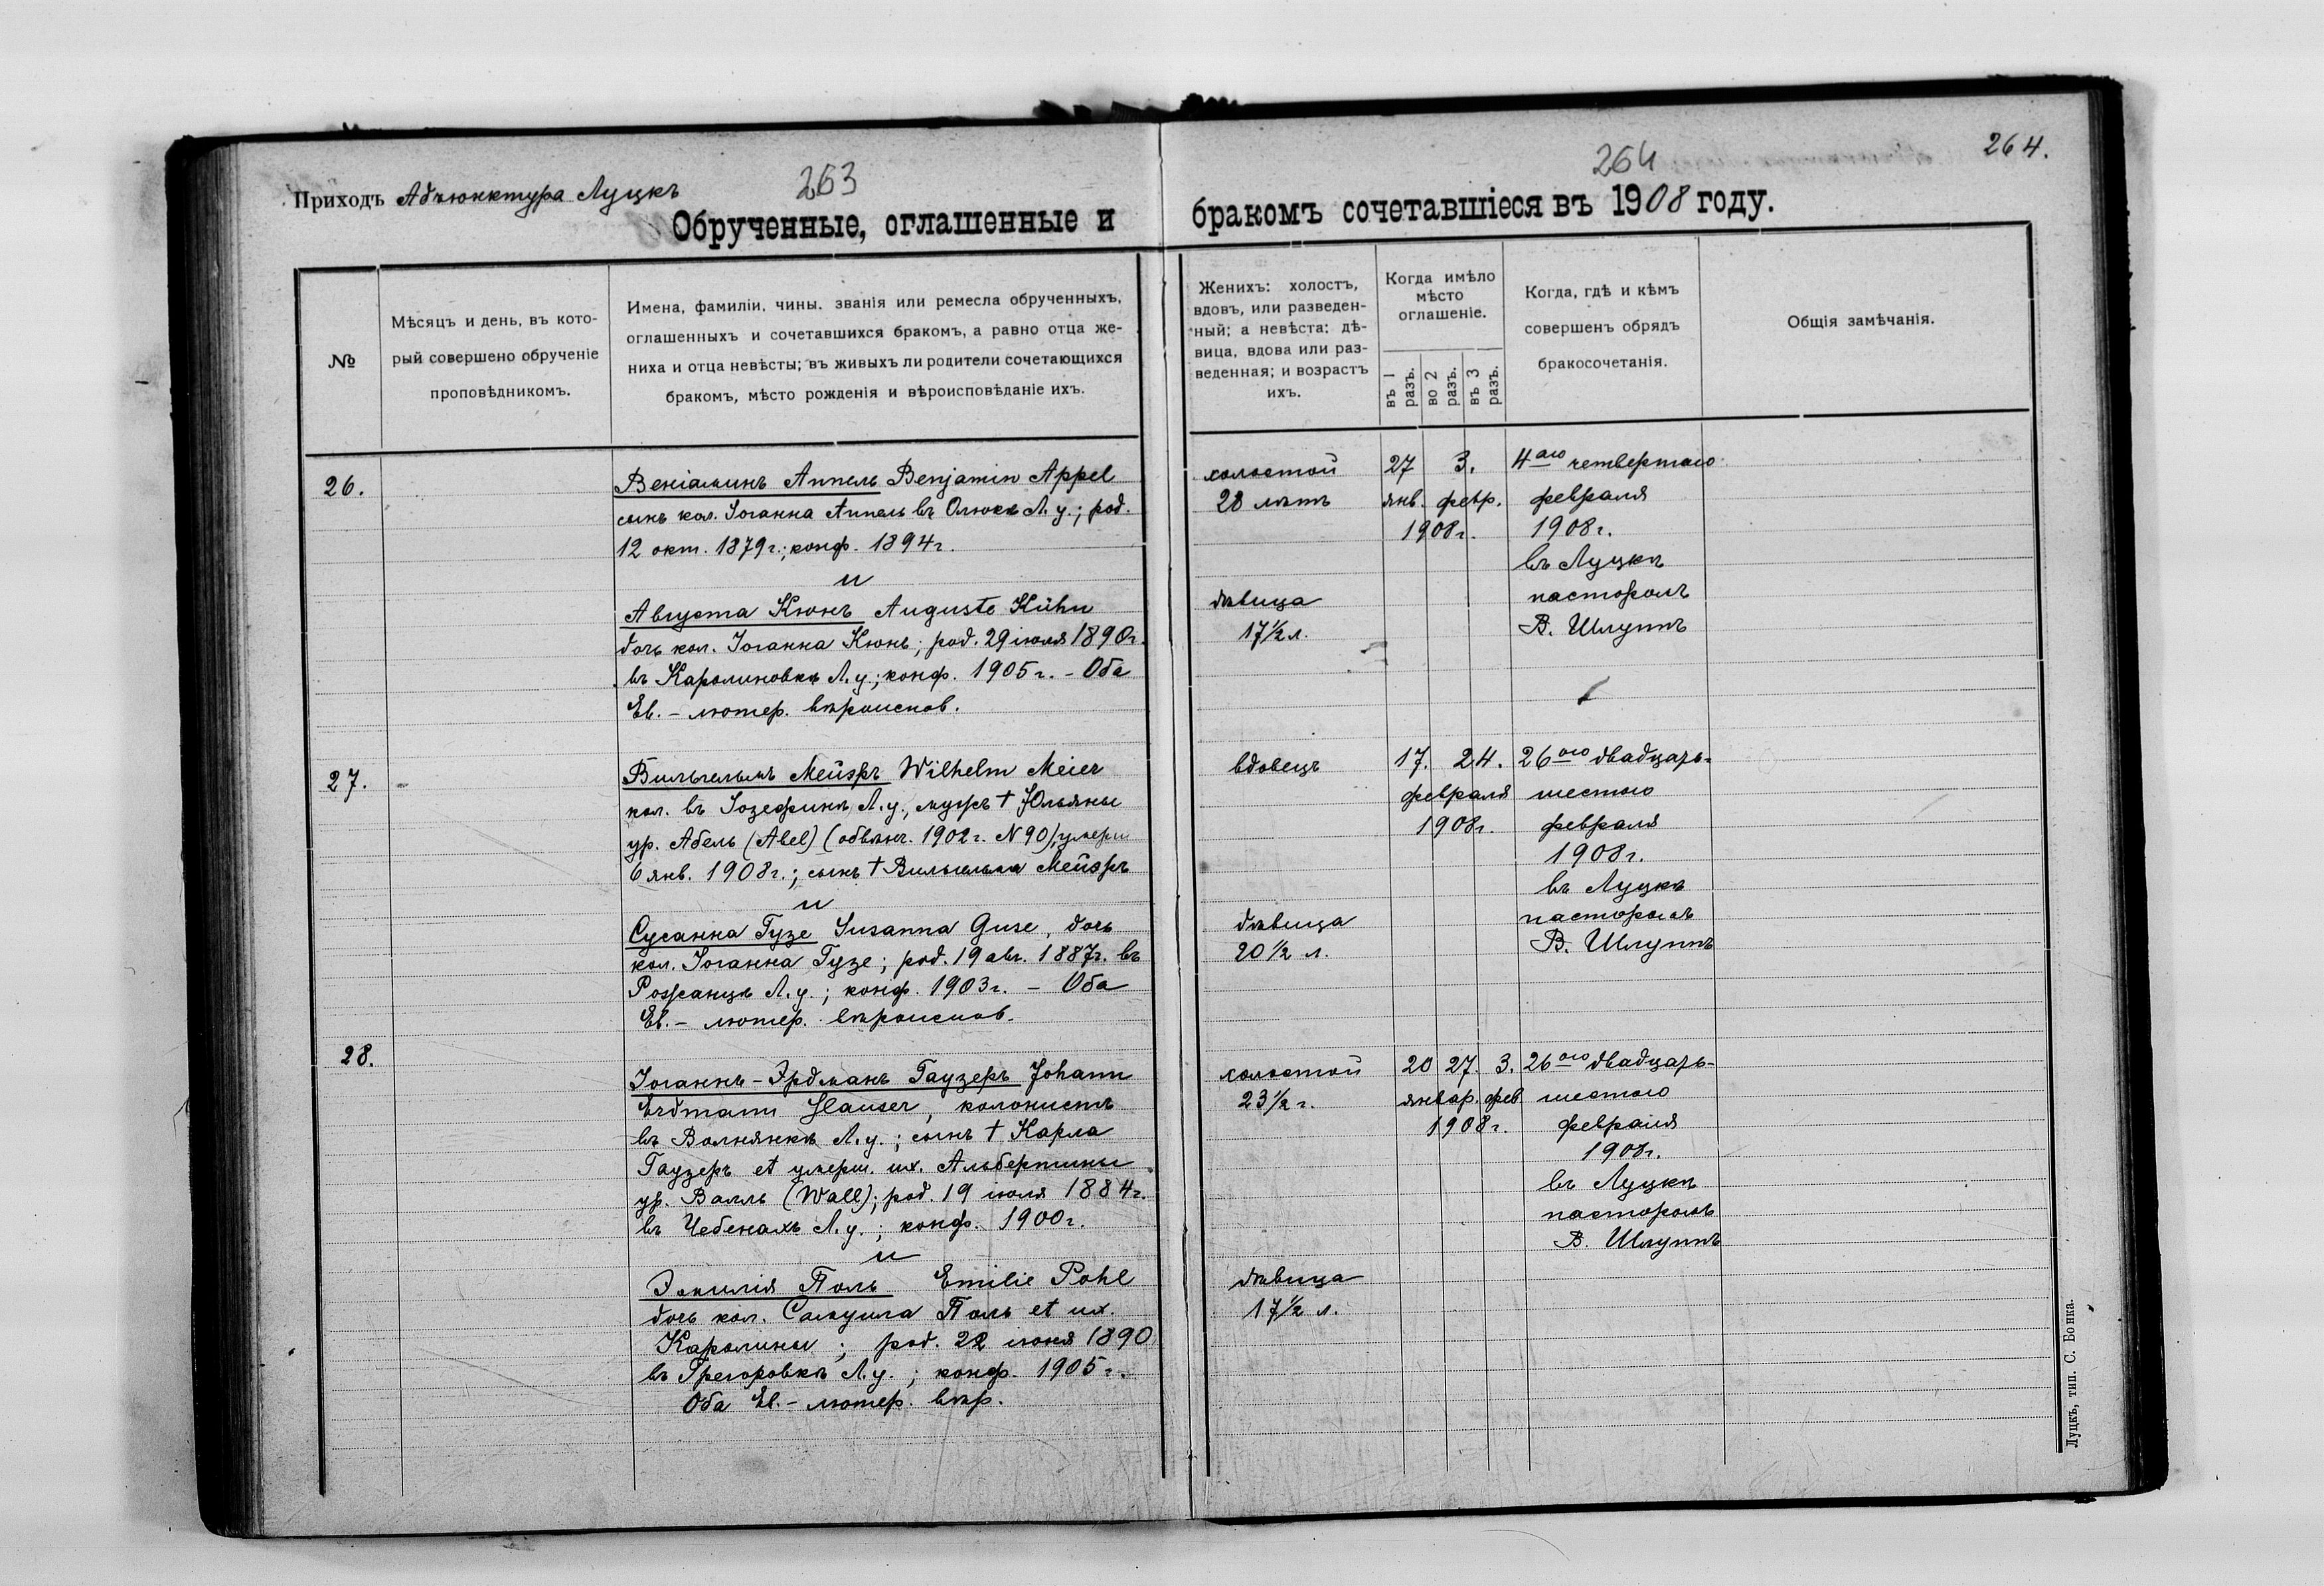 Приходъ Адъюнктура Луцкъ
263
264
264.
Обрученные, оглашенные и бракомъ сочетавшіеся въ 1908 году.
№
Мѣсяцъ и день, въ кото-
рый совершено обрученіе
проповѣдникомъ.
Имена, фамиліи, чины, званія или ремесла обрученныхъ,
оглашенныхъ и сочетавшихся бракомъ, а равно отца же-
ниха и отца невѣсты; въ живыхъ ли родители сочетающихся
бракомъ, мѣсто рожденія и вѣроисповѣданіе ихъ.
Женихъ: холостъ,
вдовъ, или разведен-
ный; а невѣста: дѣ-
вица, вдова или раз-
веденная; и возрастъ
ихъ.
Когда имѣло
мѣсто
оглашеніе.
въ 1 разъ.
во 2 разъ.
въ 3 разъ.
Когда, гдѣ и кѣмъ
совершенъ обрядъ
бракосочетанія.
Общія замѣчанія.
26.
Веніаминъ Аппель Benjamin Appel
сынъ кол. Іоганна Аппель въ Олюкѣ Л. у.; род.
12 окт. 1879 г.; конф. 1894 г.
и
Августа Кюнъ Auguste Kühn
дочь кол. Іоганна Кюнъ; род. 29 іюля 1890 г.
въ Каролиновкѣ Л. у.; конф. 1905 г. - Оба
Ев. - лютер. вѣроиспов.
холостой
28 лѣтъ
дѣвица
17 1/2 л.
27 3.
янв. февр.
1908 г.
4ого четвертаго
февраля
1908 г.
въ Луцкѣ
пасторомъ
В. Шлуппъ
27.
Вильгельмъ Мейэръ Wilhelm Meier
кол. въ Іозефинѣ Л. у., мужъ † Юльяны
ур. Абель (Abel) (обвѣнч. 1902 г. N 90), умерш.
6 янв. 1908 г.; сынъ † Вильгельма Мейэръ
и
Сусанна Гузе Susanna Guse, дочь
кол. Іоганна Гузе; род. 19 авг. 1887 г. въ
Рожанцѣ Л. у.; конф. 1903 г. - Оба
Ев. - лютер. вѣроиспов.
вдовецъ
дѣвица
20 1/2 л.
17. 24.
февраля
1908 г.
26ого двадцать-
шестого
февраля
1908 г.
въ Луцкѣ
пасторомъ
В. Шлуппъ
28.
Іоганнъ-Эрдманъ Гаузеръ Johann
Erdmann Hauser, колонистъ
въ Волнянкѣ Л. у.; сынъ † Карла
Гаузеръ et умерш. их. Альбертины
ур. Валль (Wall); род. 19 іюля 1884 г.
въ Чебенахъ Л. у.; конф. 1900 г.
и
Эмилія Поль Emilie Pohl
дочь кол. Самуила Поль et их.
Каролины; род. 22 іюня 1890
въ Грегоровкѣ Л. у.; конф. 1905 г.
Оба Ев. - лютер. вѣр.
холостой
23 1/2 г.
дѣвица
17 1/2 л.
20 27. 3.
январ. фев
1908 г.
26ого двадцать-
шестого
февраля
1908 г.
въ Луцкѣ
пасторомъ
В. Шлуппъ
Луцкъ, тип. С. Бонка.